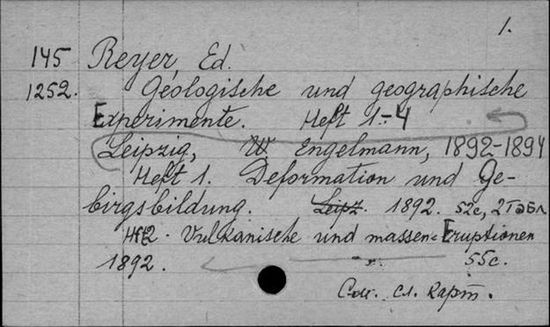 1.
145 Reyer, Ed.
1252. Geologische und geographische
Experimente. Heft 1-4
Leipzig, W Engelmann, 1892-1894
Heft 1. Deformation und Ge-
birgsbildung. Leipz. 1892. 52с, 2 табл
Hft2. Vulkanische und massen-Eruptionen
1892. 55с.
См. сл. карт.